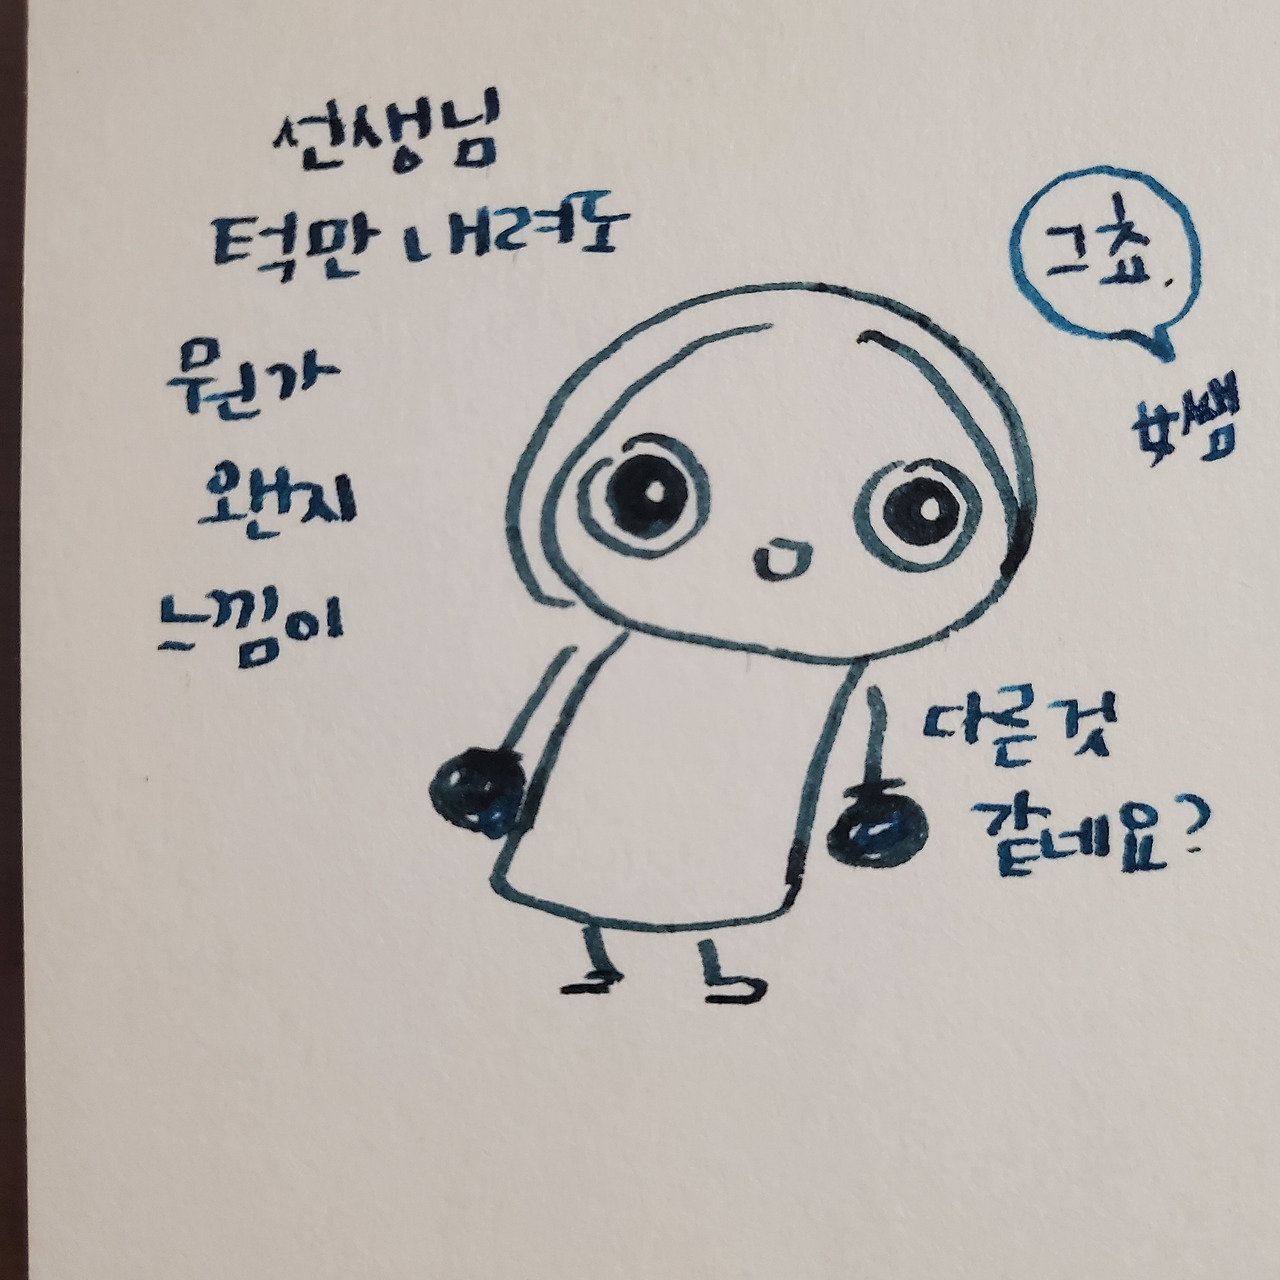 선생님
턱만 내려도
뭔가
왠지
느낌이
다른것
같네요?
그쵸.
#쌤